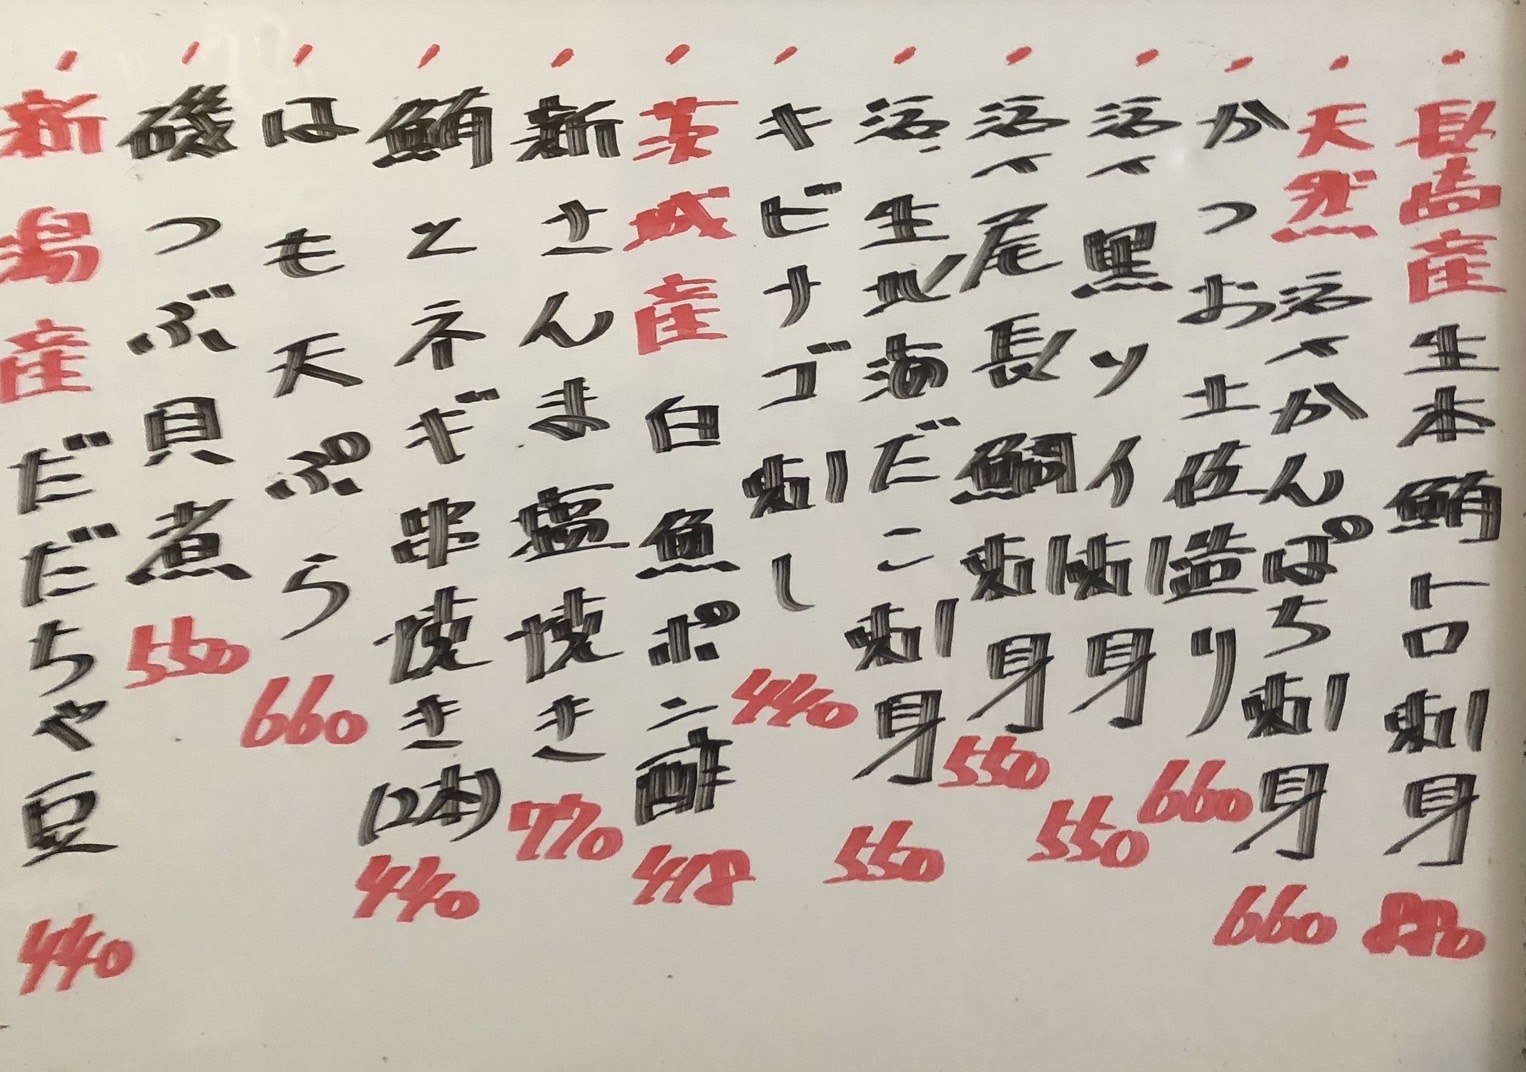 ・長崎産生本鮪トロ刺身 880
・天然活〆かんぱち刺身 660
・かつお土佐造り 660
・活〆黒ソイ刺身 550
・活〆尾長鯛刺身 550
・活生地海だこ刺身 550
・キビナゴ刺し 440
・茨城産白魚ポン酢 418
・新さんま塩焼き 770
・鮪とネギ串焼き(2本) 440
・はも天ぷら 660
・磯つぶ貝煮 550
・新潟産だだちゃ豆 440